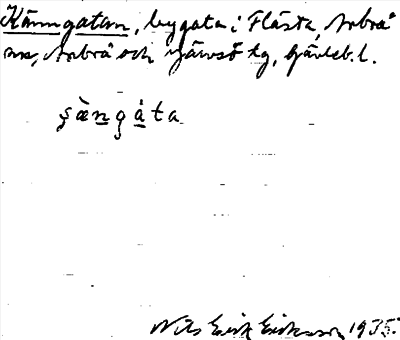 Känngatan, bygata i Flästa, Arbrå
sn, Arbrå och Järvsö tg, Gävleb.l.
Nils Erik Eriksson 1935.